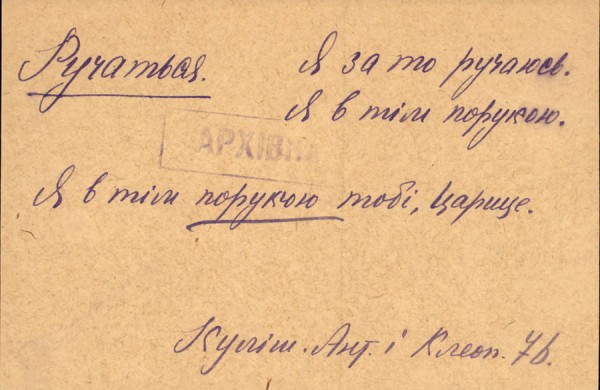 Ручаться.
Я за то ручаюсь.
Я в тім порукою.
АРХІВНА
Я в тім порукою тобі, Царице.
Куліш. Ант. і Клеоп. 76.